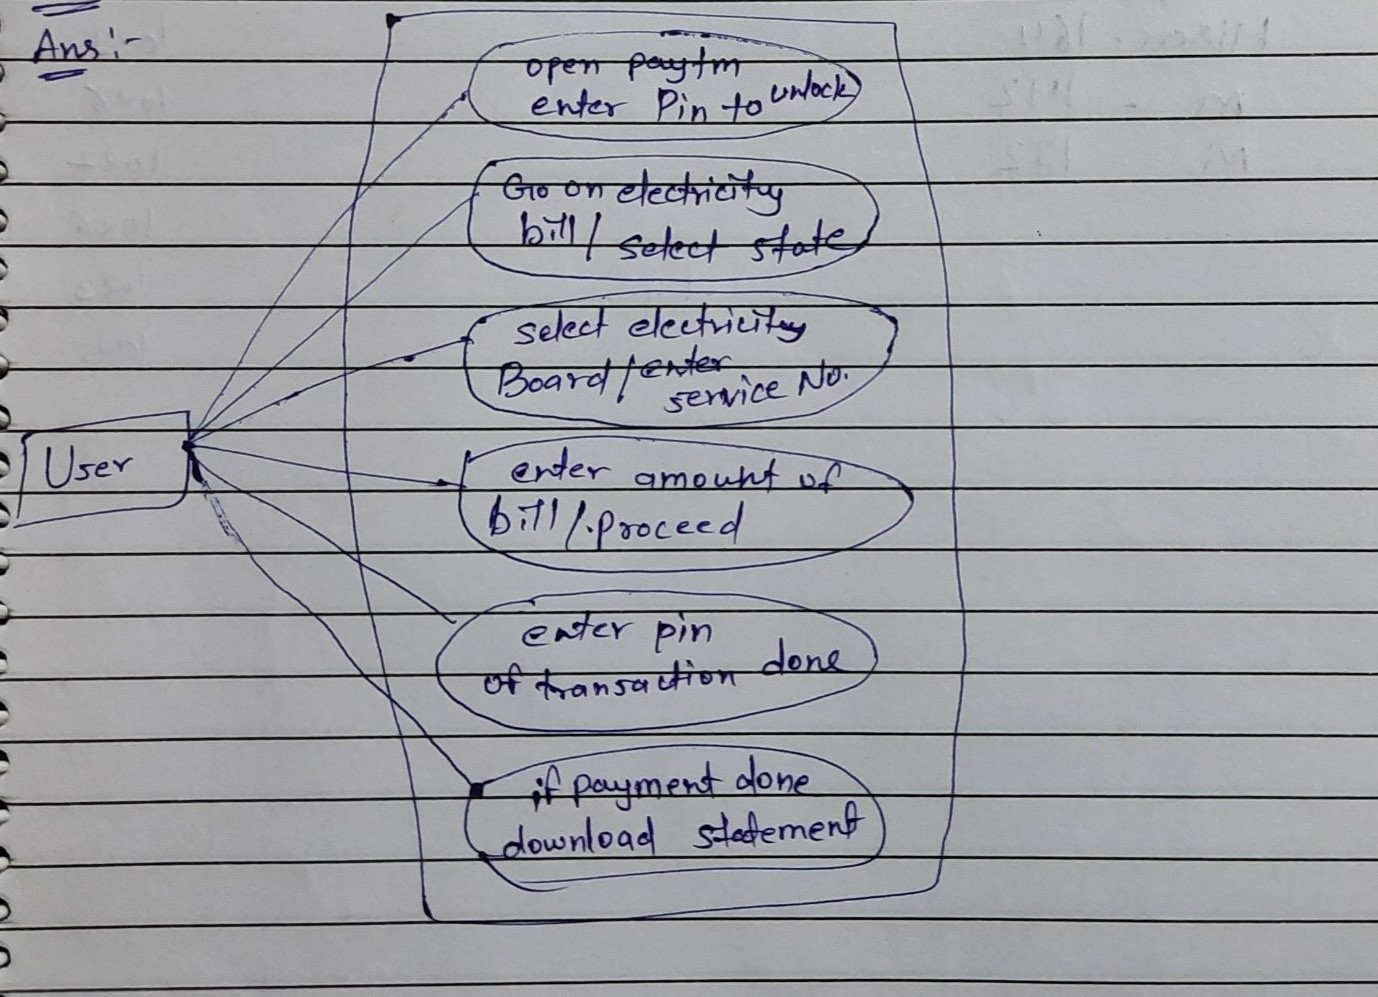 Ans :-
open paytm
enter Pin to unlock
Go on electricity
bill / select state
select electricity
Board / enter
service No.
User
enter amount of
bill /. proceed
enter pin
of transaction done
if payment done
download statement